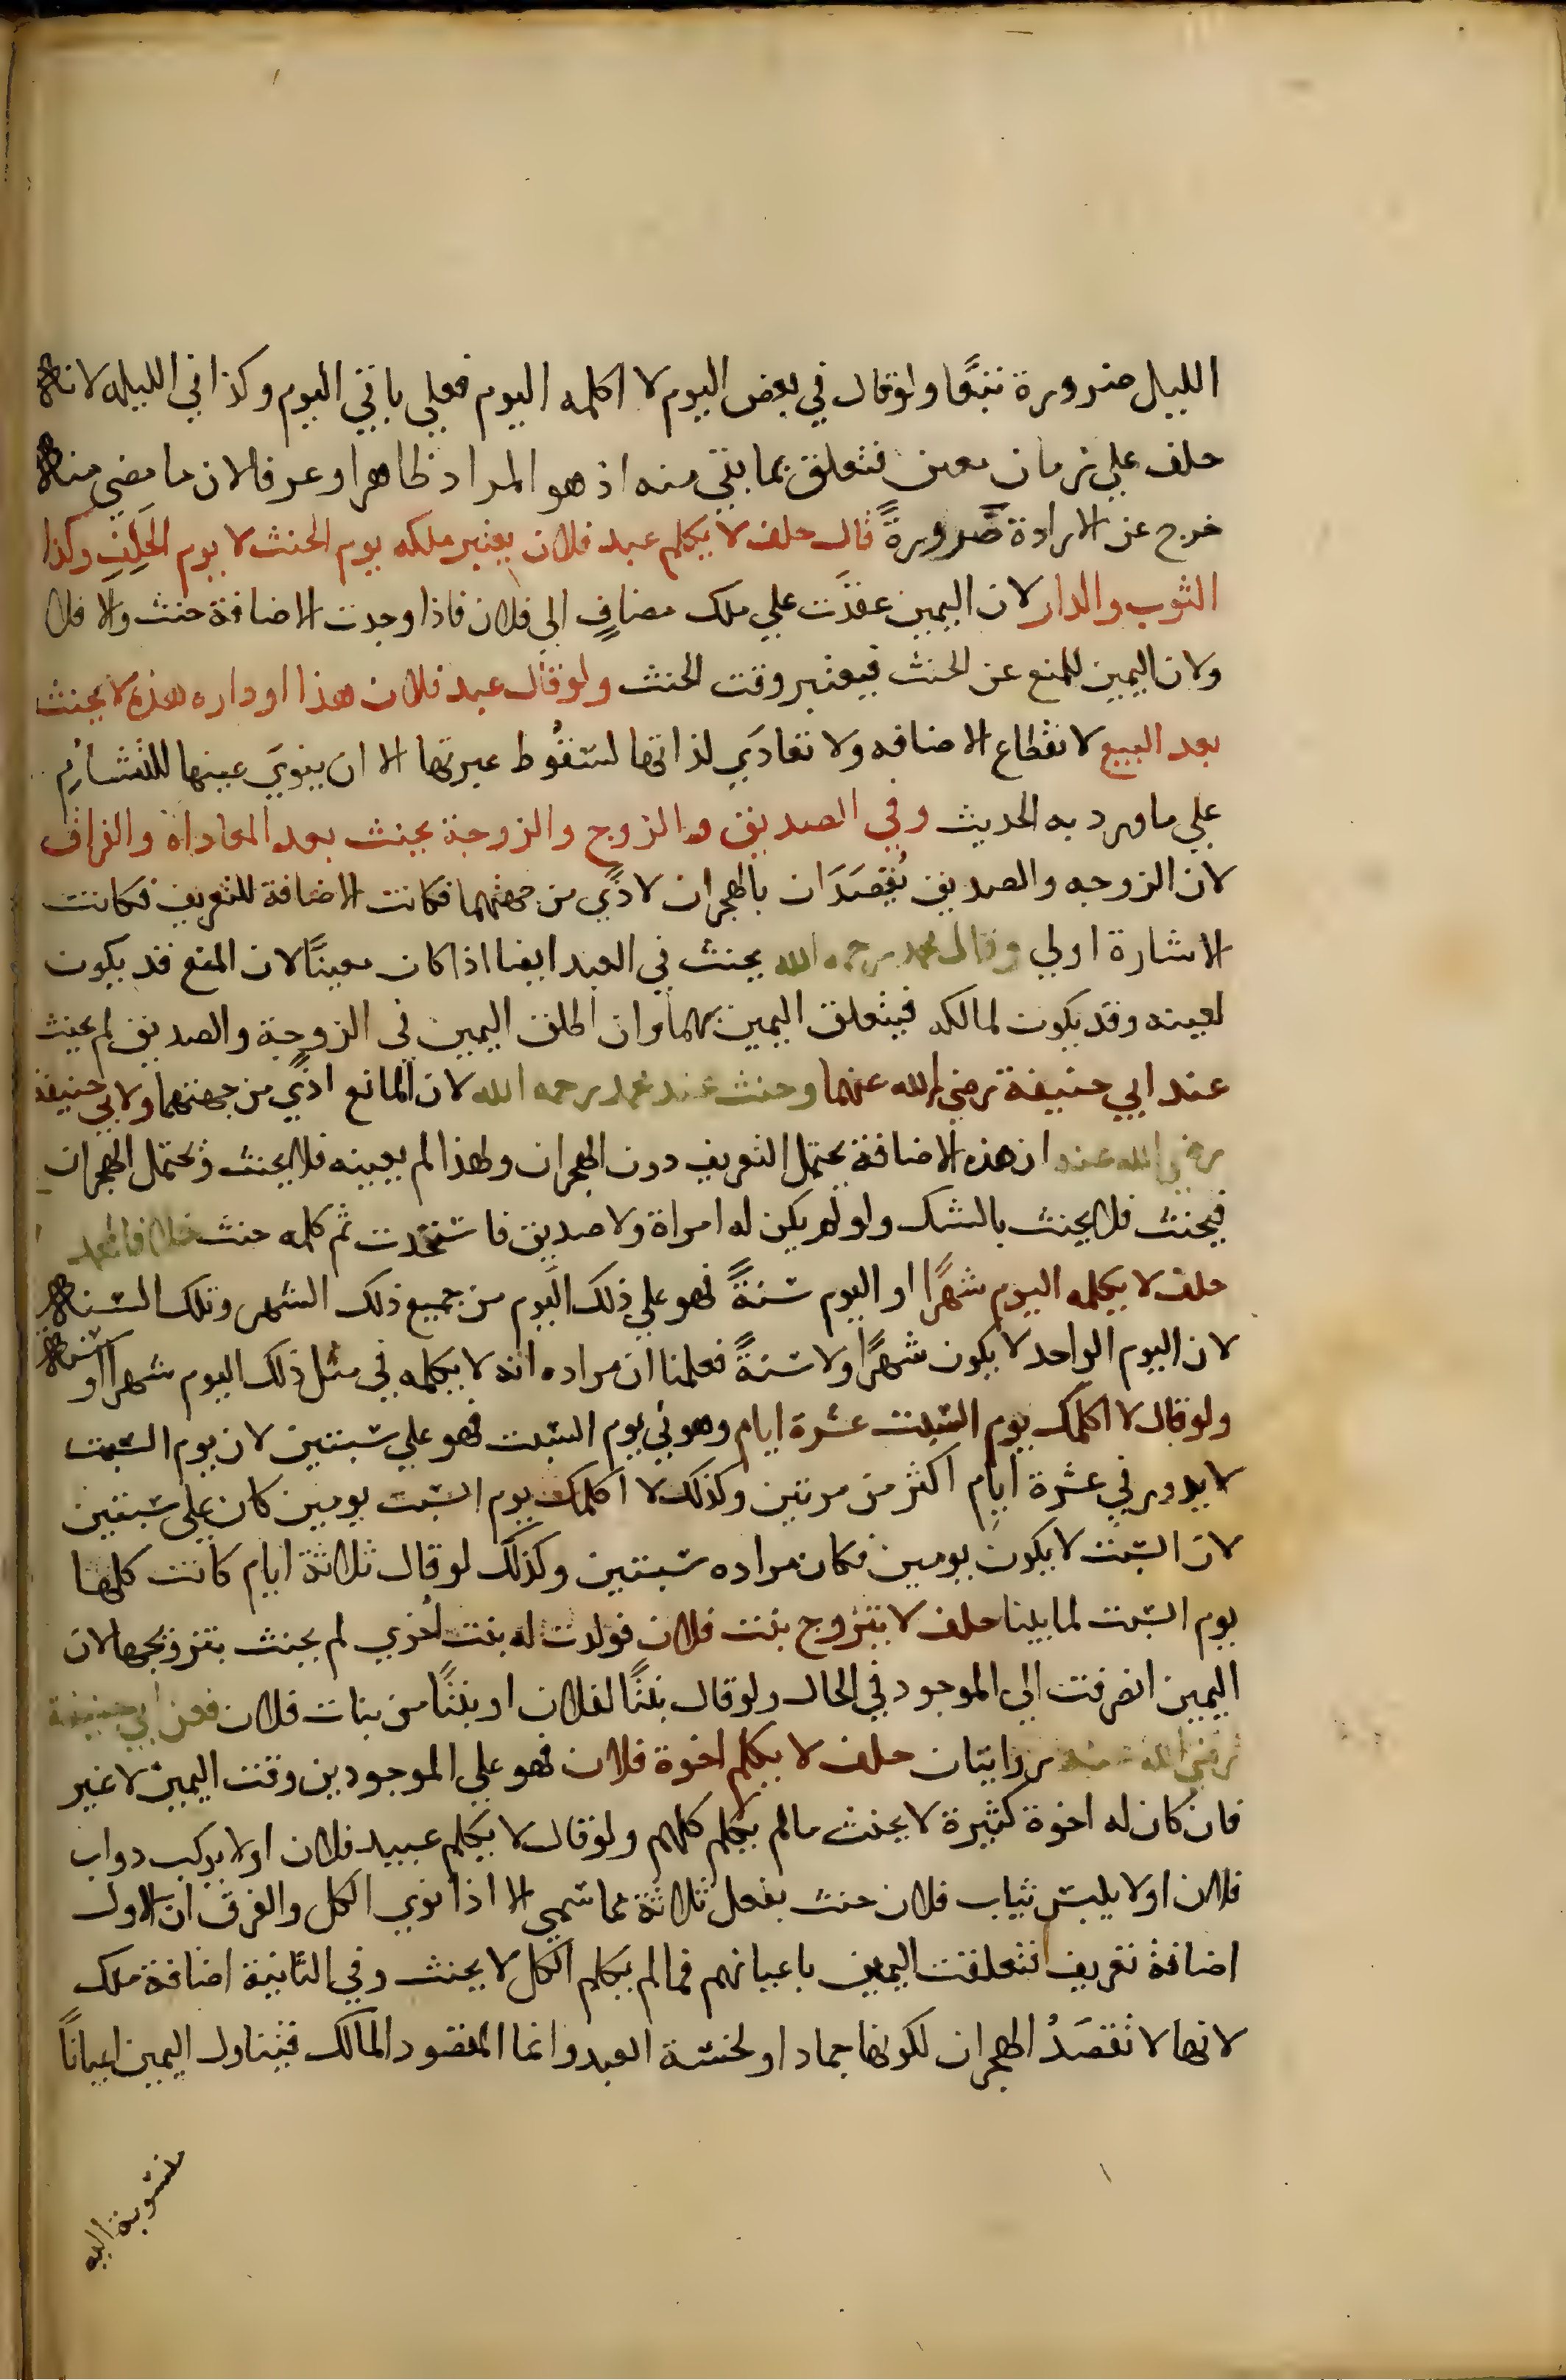 الليل ضرورة تبعًا ولو قال في بعض اليوم لا اكلمه اليوم فعلي باقي اليوم وكذا في الليله لانه
حلف علي زمان معين فتعلق بما بقي منه اذ هو المراد ظاهرا وعرفا لان ما مضي منه
خرج عن الارادة ضرورةً قال حلف لا يكلم عبد فلان يعتبر ملكه يوم الحنث لا يوم الحَلِفِ وكذا
الثوب والدار لان اليمين عقدَت علي ملك مضافٍ الي فلان فاذا وجدت الاضافة حنث والا فلا
ولان اليمين للمنع عن الحنث فيعتبر وقت الحنث ولو قال عبد فلان هذا او داره هذه لا يحنث
بعد البيع لانقطاع الاضافه ولا تعادَي لذاتها لسقُوط عبرتها الا ان ينويَ عينها للتشاؤم
علي ما ورد به الحديث وفي الصديق والزوج والزوجة يحنث بعد المعاداة والفراق
لان الزوجه والصديق يُقصَدَان بالهجران لاذًي من جهتهما فكانت الاضافة للتعريف فكانت
الاشارة اولي وقال محمد رحمه الله يحنث في العبد ايضا اذا كان معينًا لان المنع قد يكون
لعينه وقد يكون لمالكه فيتعلق اليمين بهما وان اطلق اليمين في الزوجة والصديق لم يحنث
عند ابي حنيفة رضي الله عنهما وحنث عند محمد رحمه الله لان المانع اذًي من جهتهما ولابي حنيفة
رضي الله عنه ان هذه الاضافة يحتمل التعريف دون الهجران ولهذا لم يعينه فلا يحنث ويحتمل الهجران
فيحنث فلا يحنث بالشك ولو لم يكن له امراة ولا صديق فاستحدث ثم كلمه حنث خلافا لمحمد
حلف لا يكلمه اليوم شهرًا او اليوم سنةً فهو علي ذلك اليوم من جميع ذلك الشهر وتلك السنه
لان اليوم الواحد لا يكون شهرًا ولا سنةً فعلمنا ان مراده انه لا يكلمه في مثل ذلك اليوم شهرا او سنه
ولو قال لا اكلمك يوم السبت عشرة ايام وهو في يوم السبت فهو علي سبتين لان يوم السبت
لا يدور في عشرة ايام اكثر من مرتين وكذلك لا اكلمك يوم السبت يومين كان علي سبتين
لان السبت لا يكون يومين فكان مراده سبتين وكذلك لو قال ثلاثة ايام كانت كلها
يوم السبت لما بينا حلف لا يتزوج بنت فلان فولدت له بنت اُخري لم يحنث بتزويجها لان
اليمين انصرفت الي الموجود في الحال ولو قال بنتًا لفلان او بنتًا من بنات فلان فعن ابي حنيفة
رضي الله عنه روايتان حلف لا يكلم اخوة فلان فهو علي الموجودين وقت اليمين لا غير
فان كان له اخوة كثيرة لا يحنث ما لم يكلم كلهم ولو قال لا يكلم عبيد فلان او لا يركب دواب
فلان او لا يلبس ثياب فلان حنث بفعل ثلاثة مما سمي الا اذا نوي الكل والفرق ان الاول
اضافة تعريف فتعلقت اليمين باعيانهم فما لم يكلم الكل لا يحنث وفي الثانية اضافة ملك
لانها لا تقصَدُ الهجران لكونها جمادا ولخسة العبد وانما المقصود المالك فيتناول اليمين اعيانًا
منسوبة اليه